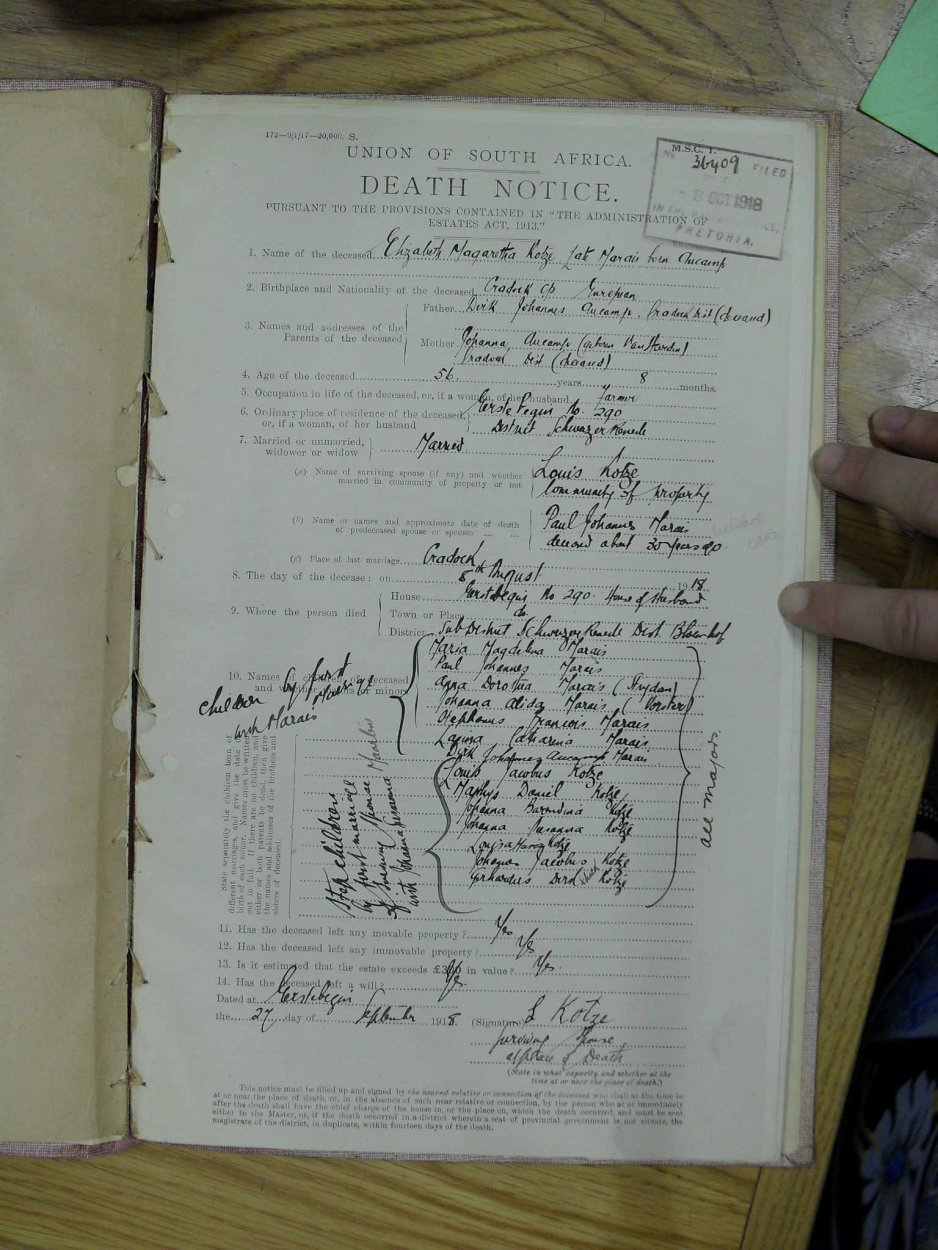 172—9/1/17—20,000. S.
M.S.C. 1.
No 36409 FILED
- 8 OCT 1918
IN THE
PRETORIA.
UNION OF SOUTH AFRICA.
DEATH NOTICE.
PURSUANT TO THE PROVISIONS CONTAINED IN "THE ADMINISTRATION OF
ESTATES ACT, 1913."
1. Name of the deceased Elizabeth Magaretha Kotze late Marais born Aucamp
2. Birthplace and Nationality of the deceased Cradock CP European
3. Names and addresses of the Parents of the deceased
Father Dirk Johannes Aucamp. Cradock Dist
Mother Johanna Aucamp (geboren Van Heerden)
Cradock Dist
4. Age of the deceased 56 years 8 months.
5. Occupation in life of the deceased, or, if a woman, of her husband farmer
6. Ordinary place of residence of the deceased, or, if a woman, of her husband
Eerstebegin No. 290
District Schweizer Reneke
7. Married or unmarried, widower or widow Married
(a) Name of surviving spouse (if any) and whether married in community of property or not
Louis Kotze
Community of Property
(b) Name or names and approximate date of death of predeceased spouse or spouses
Paul Johannes Marais
about 30 years ago
(c) Place of last marriage Cradock
8. The day of the decease: on 8th August 1918
9. Where the person died
House Eerstebegin No 290. Home of Husband
Town or Place do
District Sub District Schweizer Reneke Dist. Bloemhof
10. Names of children of deceased and whether majors or minors
children by first Marriage with Marais
Maria Magdelina Marais
Paul Johannes Marais
Anna Dorothia Marais (Strydom)
Johanna Alida Marais (Vorster)
Stephanus Francois Marais
Catharina Marais
Dirk Johannes Aucamp Marais
Louis Jacobus Kotze
Marthys Daniel Kotze
Johanna Barendina Kotze
Johanna Susanna Kotze
Louisa Kotze
Johannes Jacobus Kotze
Gerhardus Kotze
all majors.
Step children
by first marriage
of surviving
with Johanna Susanna
State separately the children born of
different marriages, and give the date of
birth of each minor. Names must be written
out in full. If there are no children, and
either or both parents be dead, then give
the names and addresses of the brothers and
sisters of deceased.
11. Has the deceased left any movable property? Yes
12. Has the deceased left any immovable property? Yes
13. Is it estimated that the estate exceeds £300 in value? Yes
14. Has the deceased left a will? Yes
Dated at Eerstebegin
the 27 day of September 1918.
(Signature) L Kotze
surviving spouse
at place of Death
(State in what capacity and whether at the
time at or near the place of death.)
This notice must be filled up and signed by the nearest relative or connection of the deceased who shall at the time be
at or near the place of death, or, in the absence of such near relative or connection, by the person who at or immediately
after the death shall have the chief charge of the house in, or the place on, which the death occurred, and must be sent
either to the Master, or, if the death occurred in a district wherein a seat of provincial government is not situate, the
magistrate of the district, in duplicate, within fourteen days of the death.